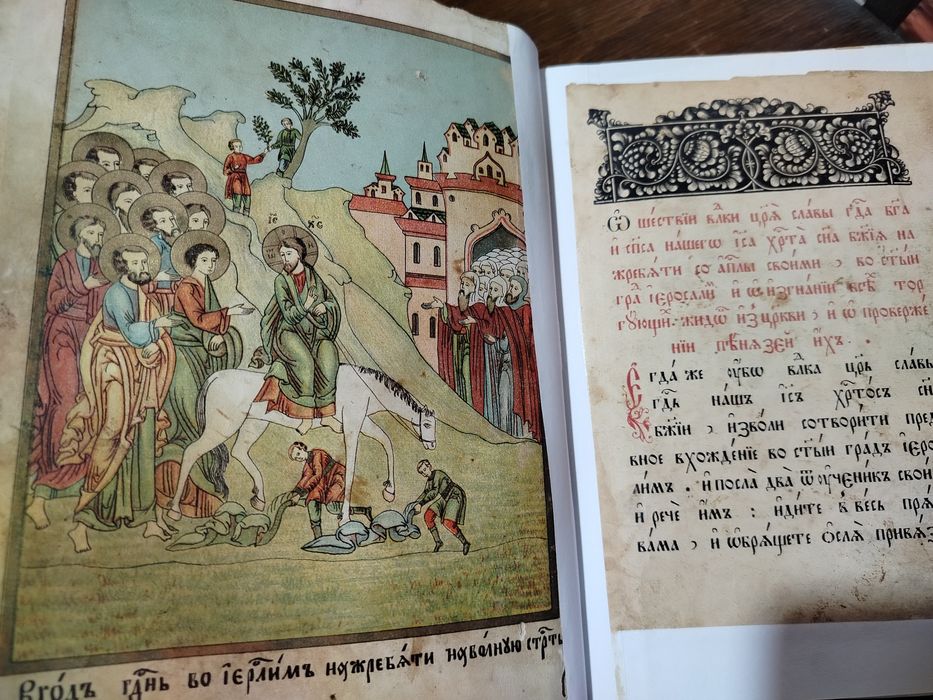 І҃С Х҃С
Вхо́дъ гд҃нь во і҆ер҇лимъ на жребѧти на во́лную стр҇ть
Ѡ҆ ше́ствїи вл҇ки цр҃ѧ̀ сла́вы гд҇а бг҃а
и҆ сп҃са на́шегѡ і҆с҃а хр҇та̀ сн҃а бж҃їѧ на
жребѧ́ти со а҆п҇лы свои́ми , во ст҃ы́й
гра́ і҆еросали́м и҆ ѡ҆ и҆згна́нїи всѣ́ тор
гꙋ́ющи . жидѡ́ и҆з̾ цр҃кви , и҆ ѡ҆ проверже
нїи пѣ́нязей и҆́хъ .
Е҆гда́ же ᲂу҆́бѡ вл҇ка цр҃ь сла́вы
гд҇ь на́шъ і҆с҃ъ хр҇то́съ сн҃
бж҃їи , и҆зво́ли сотвори́ти пред
вное вхожде́нїе во ст҃ы́й гра́дъ і҆еро
ли́м . и҆ посла̀ два̀ ѿ ᲂу҆чени́к свои́
и҆ речѐ и҆̀мъ : и҆ди́те в̾ ве́сь прѧ̀
ва́ма , и҆ ѡ҆брѧ́щете ѻ҆слѧ̀ привѧ́з